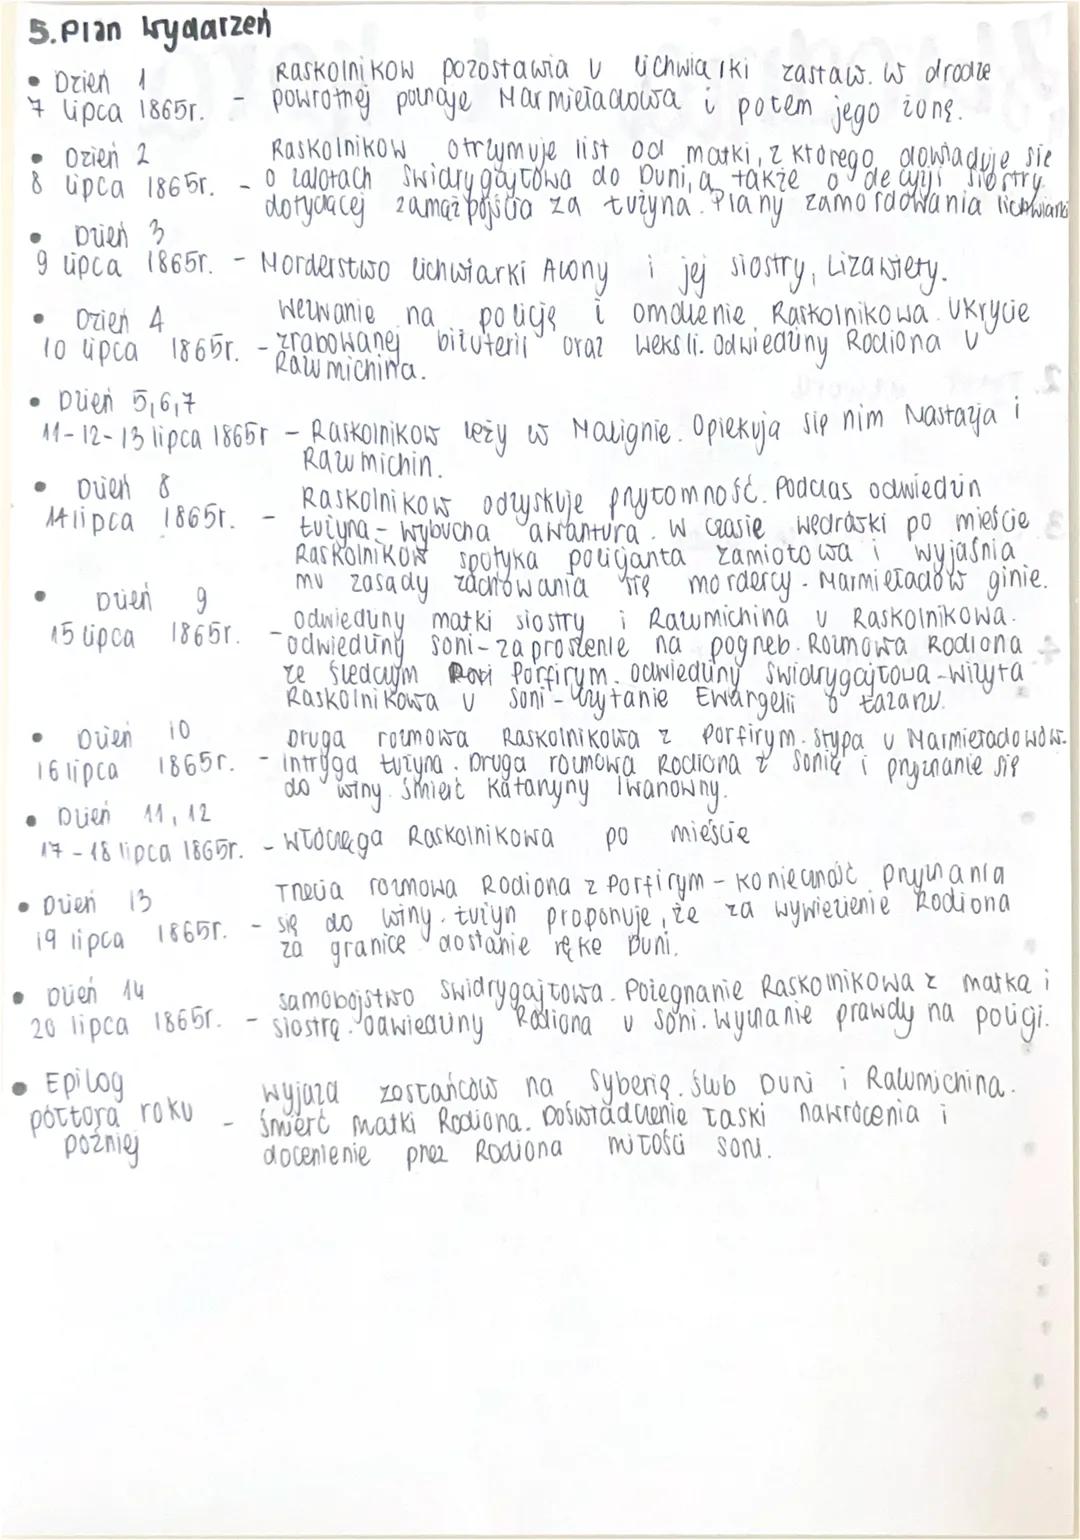 5. Plan wydarzeń
• Dzień 1
7 lipca 1865r. - Raskolnikow pozostawia u lichwiarki zastaw. W drodze
powrotnej poznaje Marmieładowa i potem jego żonę.
• Dzień 2
8 lipca 1865r. - Raskolnikow otrzymuje list od matki, z którego dowiaduje się
o zalotach Świdrygajłowa do Duni, a także o decyzji siostry
dotyczącej zamążpójścia za Łużyna. Plany zamordowania lichwiarki
• Dzień 3
9 lipca 1865r. - Morderstwo lichwiarki Alony i jej siostry, Lizawiety.
• Dzień 4
10 lipca 1865r. - Wezwanie na policję i omdlenie Raskolnikowa. Ukrycie
zrabowanej biżuterii oraz weksli. Odwiedziny Rodiona u
Razumichina.
• Dzień 5,6,7
11-12-13 lipca 1865r - Raskolnikow leży w malignie. Opiekują się nim Nastazja i
Razumichin.
• Dzień 8
14 lipca 1865r. - Raskolnikow odzyskuje przytomność. Podczas odwiedzin
Łużyna - wybucha awantura. W czasie wędrówki po mieście
Raskolnikow spotyka policjanta Zamiotowa i wyjaśnia
mu zasady zachowania się mordercy. Marmieładow ginie.
• Dzień 9
15 lipca 1865r. - Odwiedziny matki siostry i Razumichina u Raskolnikowa.
odwiedziny Soni - zaproszenie na pogrzeb. Rozmowa Rodiona
ze śledczym Porfirym. Odwiedziny Świdrygajłowa - wizyta
Raskolnikowa u Soni - czytanie Ewangelii o Łazarzu.
• Dzień 10
16 lipca 1865r. - Druga rozmowa Raskolnikowa z Porfirym. Stypa u Marmieładowów.
intryga Łużyna. Druga rozmowa Rodiona z Sonią i przyznanie się
do winy. Śmierć Katarzyny Iwanowny.
• Dzień 11, 12
17-18 lipca 1865r. - włóczęga Raskolnikowa po mieście
• Dzień 13
19 lipca 1865r. - Trzecia rozmowa Rodiona z Porfirym - konieczność przyznania
się do winy. Łużyn proponuje, że za wywiezienie Rodiona
za granice dostanie rękę Duni.
• Dzień 14
20 lipca 1865r. - samobójstwo Świdrygajłowa. Pożegnanie Raskolnikowa z matką i
siostrą. Odwiedziny Rodiona u Soni. Wyznanie prawdy na policji.
• Epilog
półtora roku
później - Wyjazd zesłańców na Syberię. Ślub Duni i Razumichina.
Śmierć matki Rodiona. Doświadczenie łaski nawrócenia i
docenienie przez Rodiona miłości Soni.